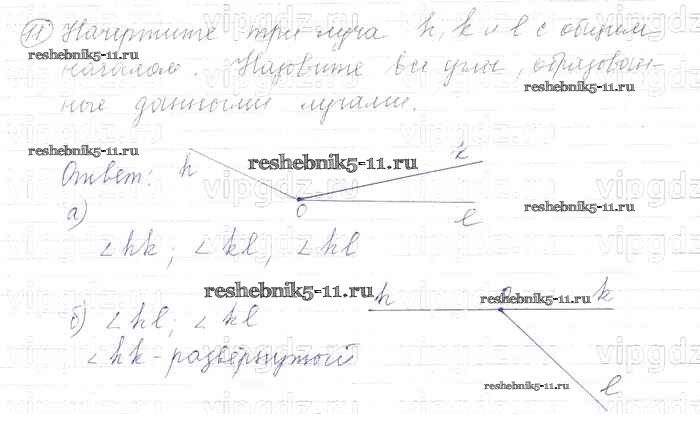 11 Начертите три луча h, k и l с общим
reshebnik5-11.ru
началом. Назовите все углы, образован-
reshebnik5-11.ru
ные данными лучами.
reshebnik5-11.ru
reshebnik5-11.ru
Ответ:
h
k
а)
O
l
reshebnik5-11.ru
∠hk; ∠kl, ∠hl
reshebnik5-11.ru
h
reshebnik5-11.ru
k
б) ∠hl; ∠kl
∠hk - развёрнутый
reshebnik5-11.ru
l
vipgdz.ru